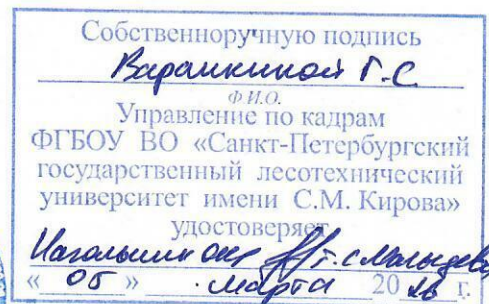 Собственноручную подпись
Варашкиной Г.С.
Ф.И.О.
Управление по кадрам
ФГБОУ ВО «Санкт-Петербургский
государственный лесотехнический
университет имени С.М. Кирова»
удостоверяет
« 05 » марта 20 г.